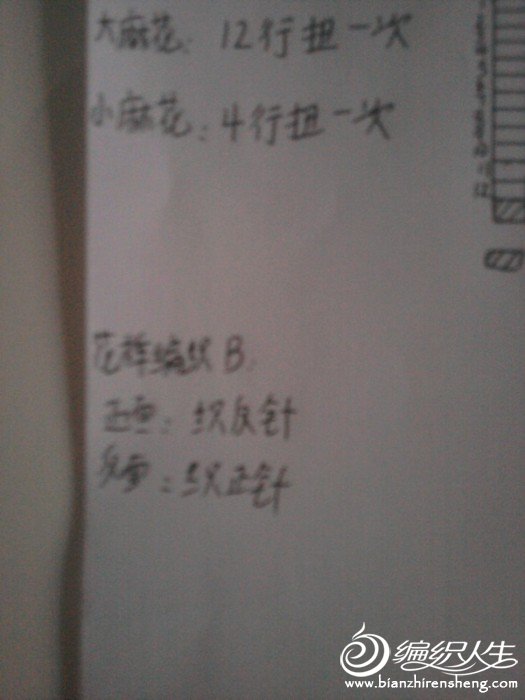 大麻花：12行扭一次
小麻花：4行扭一次
花样编织B.
正面：织反针
反面：织正针
编织人生
www.bianzhirensheng.com